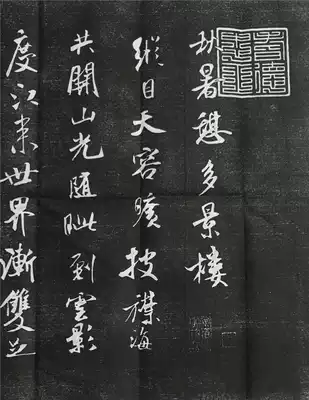 秋暑憩多景樓
縱目天容曠披襟海
共開山光隨眦到雲影
度江來世界漸雙足